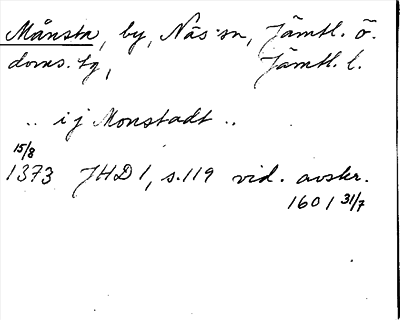 Månsta, by, Näs sn, Jämtl. ö.
doms. tg, Jämtl. l.
.. i j Monstadt ..
15/8
1373 JHD 1, s. 119 vid. avskr.
1601 31/7